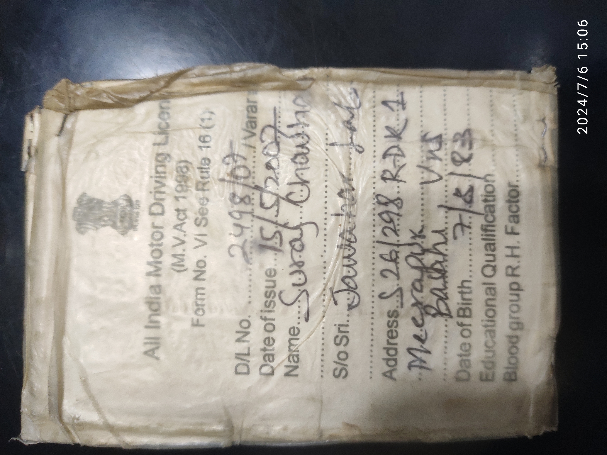 All India Motor Driving Licen
(M.V.Act 1998)
Form No. VI See Rule 16 (1)
D/L No. 2498/07 /Varan
Date of issue 15/5/2007
Name Suraj Chauhan
S/o Sri. Jawahar Lal
Address S 26/298 R.D.K 1
Meerapur
Basahi VNS
Date of Birth 7/5/83
Educational Qualification
Blood group R.H. Factor.
2024/7/6 15:06